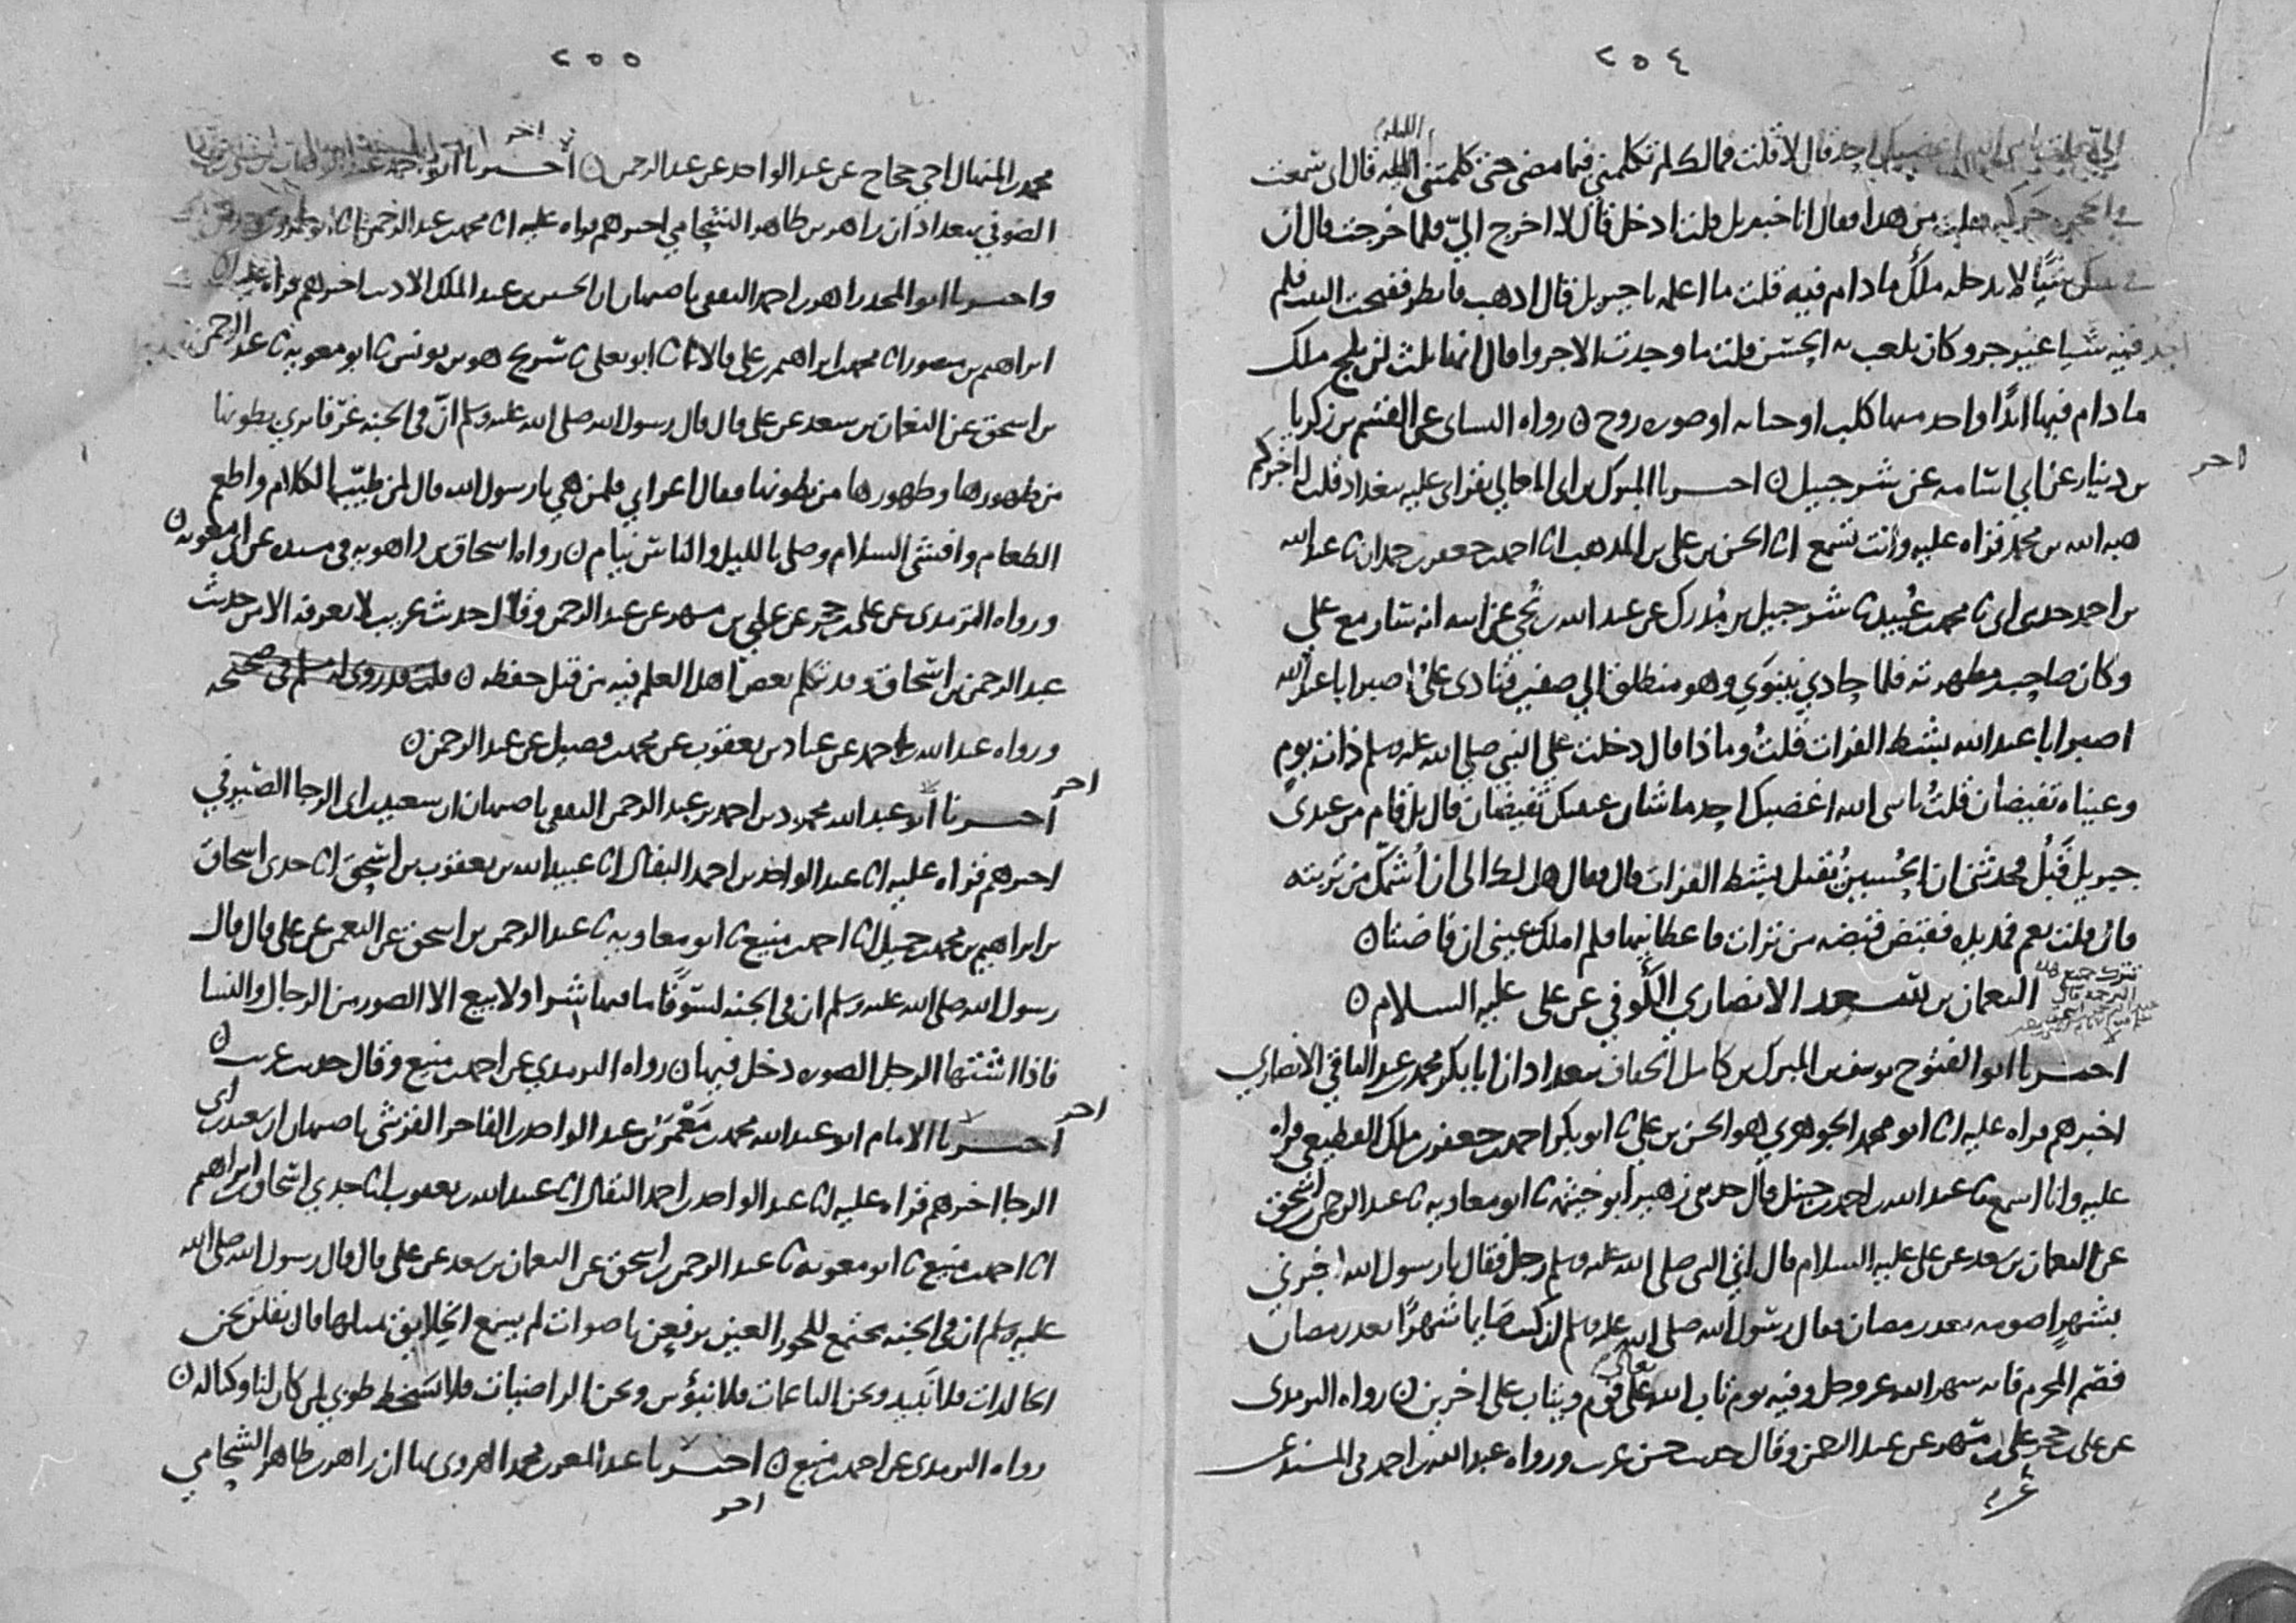 ٢٥٤
قال لا قلت فمالك لم تكلمني فيما مضى حتى كلمتني الليلة قال اني سمعت
في الحجرة حركة فقلت من هذا فقال انا جبريل قلت ادخل قال لا اخرج الي فلما خرجت قال ان
في بيتك شيا لا يدخله ملك ما دام فيه قلت ما اعلمه يا جبريل قال اذهب فانظر ففتحت البيت فلم
اجد فيه شيا غير جرو كان يلعب به الحسن قلت ما وجدت الا جروا قال انها ثلث لن يلج ملك
ما دام فيها ابدا واحد منها كلب او جنابه او صوره روح ن رواه النساي عن القسم بن زكريا
بن دينار عن ابي اسامه عن شرحبيل ن اخبرنا المبرك بن ابي المعالي بقراي عليه ببغداد قلت له اخبركم
اخر
هبه الله بن محمد قراه عليه وانت تسمع انا الحسن بن علي بن المذهب انا احمد بن جعفر بن حمدان نا عبد الله
بن احمد حدثني ابي نا محمد بن عبيد نا شرحبيل بن مدرك عن عبد الله بن نجي عن ابيه انه سار مع علي
وكان صاحب مطهرته فلما حاذي نينوي وهو منطلق الي صفين فنادى علي اصبر ابا عبد الله
اصبر ابا عبد الله بشط الفرات قلت وماذا قال دخلت علي النبي صلى الله عليه وسلم ذات يوم
وعيناه تفيضان قلت يا نبي الله اغضبك احد ما شان عينيك تفيضان قال بل قام من عندي
جبريل قبل فحدثني ان الحسين يقتل بشط الفرات قال فقال هل لك الى ان اشمك من تربته
قال قلت نعم فمد يده فقبض قبضه من تراب فاعطانيها فلم املك عيني ان فاضتا ن
النعمان بن سعد الانصاري الكوفي عن علي عليه السلام ن
اخبرنا ابو الفتوح يوسف بن المبرك بن كامل الخفاف ببغداد ان ابا بكر محمد بن عبد الباقي الانصاري
اخبرهم قراه عليه انا ابو محمد الجوهري هو الحسن بن علي نا ابو بكر احمد بن جعفر بن ملك القطيعي قراه
عليه وانا اسمع نا عبد الله بن احمد بن حنبل قال حدثني زهير ابو خيثمه نا ابو معاويه نا عبد الرحمن بن اسحق
عن النعمان بن سعد عن علي عليه السلام قال اتى النبي صلى الله عليه وسلم رجل فقال يا رسول الله اخبرني
بشهر اصومه بعد رمضان فقال رسول الله صلى الله عليه وسلم ان كنت صايما شهرا بعد رمضان
فصم المحرم فانه شهر الله عز وجل وفيه يوم تاب الله تعالى على قوم ويتاب على اخرين ن رواه الترمذي
عن علي بن حجر عن علي بن مسهر عن عبد الرحمن وقال حديث حسن غريب ورواه عبد الله بن احمد في المسند عن
٢٥٥
محمد بن المنهال اخي حجاج عن عبد الواحد عن عبد الرحمن ن اخبرنا ابو احمد
الصوفي ببغداد ان زاهر بن طاهر الشحامي اخبرهم قراه عليه انا محمد بن عبد الرحمن
واخبرنا ابو المجد زاهر بن احمد الثقفي باصبهان ان الحسين بن عبد الملك الاديب اخبرهم قراه عليه انا
ابراهيم بن منصور انا محمد بن ابراهيم بن علي قالا انا ابو يعلى نا شريح هو بن يونس نا ابو معويه نا عبد الرحمن
بن اسحق عن النعمان بن سعد عن علي قال قال رسول الله صلى الله عليه وسلم ان في الجنه غرفا يري بطونها
من ظهورها وظهورها من بطونها فقال اعرابي فلمن هي يا رسول الله قال لمن طيب الكلام واطعم
الطعام وافشى السلام وصلى بالليل والناس نيام ن رواه اسحاق بن راهويه في مسنده عن ابي معويه ن
ورواه الترمذي عن علي بن حجر عن علي بن مسهر عن عبد الرحمن وقال حديث غريب لا نعرفه الا من حديث
عبد الرحمن بن اسحاق وقد تكلم بعض اهل العلم فيه من قبل حفظه ن قلت قد روى له مسلم في صحيحه
ورواه عبد الله بن احمد عن عباد بن يعقوب عن محمد بن فضيل عن عبد الرحمن ن
اخر
اخبرنا ابو عبد الله محمود بن احمد بن عبد الرحمن الثقفي باصبهان ان سعيد بن ابي الرجا الصيرفي
اخبرهم قراه عليه انا عبد الواحد بن احمد البقال انا عبيد الله بن يعقوب بن اسحق انا جدي اسحاق
بن ابراهيم بن محمد بن جميل انا احمد بن منيع نا ابو معاويه نا عبد الرحمن بن اسحق عن النعمن عن علي قال قال
رسول الله صلى الله عليه وسلم ان في الجنه لسوقا ما فيها شرا ولا بيع الا الصور من الرجال والنسا
فاذا اشتها الرجل الصوره دخل فيها ن رواه الترمذي عن احمد بن منيع وقال حديث غريب ن
اخر
اخبرنا الامام ابو عبد الله محمد بن معمر بن عبد الواحد بن الفاخر القرشي باصبهان ان سعيد بن ابي
الرجا اخبرهم قراه عليه انا عبد الواحد بن احمد البقال انا عبيد الله بن يعقوب انا جدي اسحاق بن ابراهيم
انا احمد بن منيع نا ابو معويه نا عبد الرحمن بن اسحق عن النعمان بن سعد عن علي قال قال رسول الله صلى الله
عليه وسلم ان في الجنه مجتمع للحور العين يرفعن باصوات لم يسمع الخلايق مثلها قال يقلن نحن
الخالدات فلا نبيد ونحن الناعمات فلا نبؤس ونحن الراضيات فلا نسخط طوبي لمن كان لنا وكنا له ن
رواه الترمذي عن احمد بن منيع ن اخبرنا عبد المعز بن محمد الهروي بها ان زاهر بن طاهر الشحامي
اخر